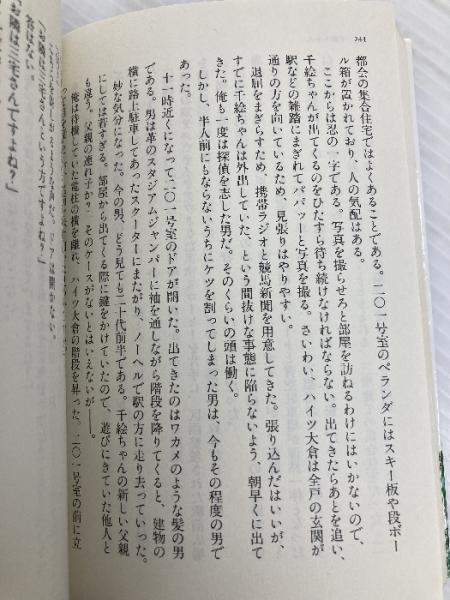 241
都会の集合住宅ではよくあることである。二〇一号室のベランダにはスキー板や段ボー
ル箱が置かれており、人の気配はある。
ここからは忍の一字である。写真を撮らせろと部屋を訪ねるわけにはいかないので、
千絵ちゃんが出てくるのをひたすら待ち続けなければならない。出てきたらあとを追い、
駅などの雑踏にまぎれてパパッーと写真を撮る。さいわい、ハイツ大倉は全戸の玄関が
通りの方を向いているため、見張りはやりやすい。
退屈をまぎらすため、携帯ラジオと競馬新聞を用意してきた。張り込んだはいいが、
すでに千絵ちゃんは外出していた、という間抜けな事態に陥らないよう、朝早くに出て
きた。俺も一度は探偵を志した男だ。そのくらいの頭は働く。
しかし、半人前にもならないうちにケツを割ってしまった男は、今もその程度の男で
あった。
十一時近くになって二〇一号室のドアが開いた。出てきたのはワカメのような髪の男
である。男は革のスタジアムジャンパーに袖を通しながら階段を降りてくると、建物の
横に路上駐車してあったスクーターにまたがり、ノーヘルで駅の方に走り去っていった。
妙な気分になった。今の男、どう見ても二十代前半である。千絵ちゃんの新しい父親
にしては若すぎる。部屋から出てくる際に鍵をかけていたので、遊びにきていた他人と
も違う。父親の連れ子か？　そのケースがないとはいえないが――。
俺は待機していた電柱の横を離れ、ハイツ大倉の階段を昇った。二〇一号室の前に立
「お隣は三宅さんという方ですよね？」
答えない。
「お隣は三宅さんですよね？」